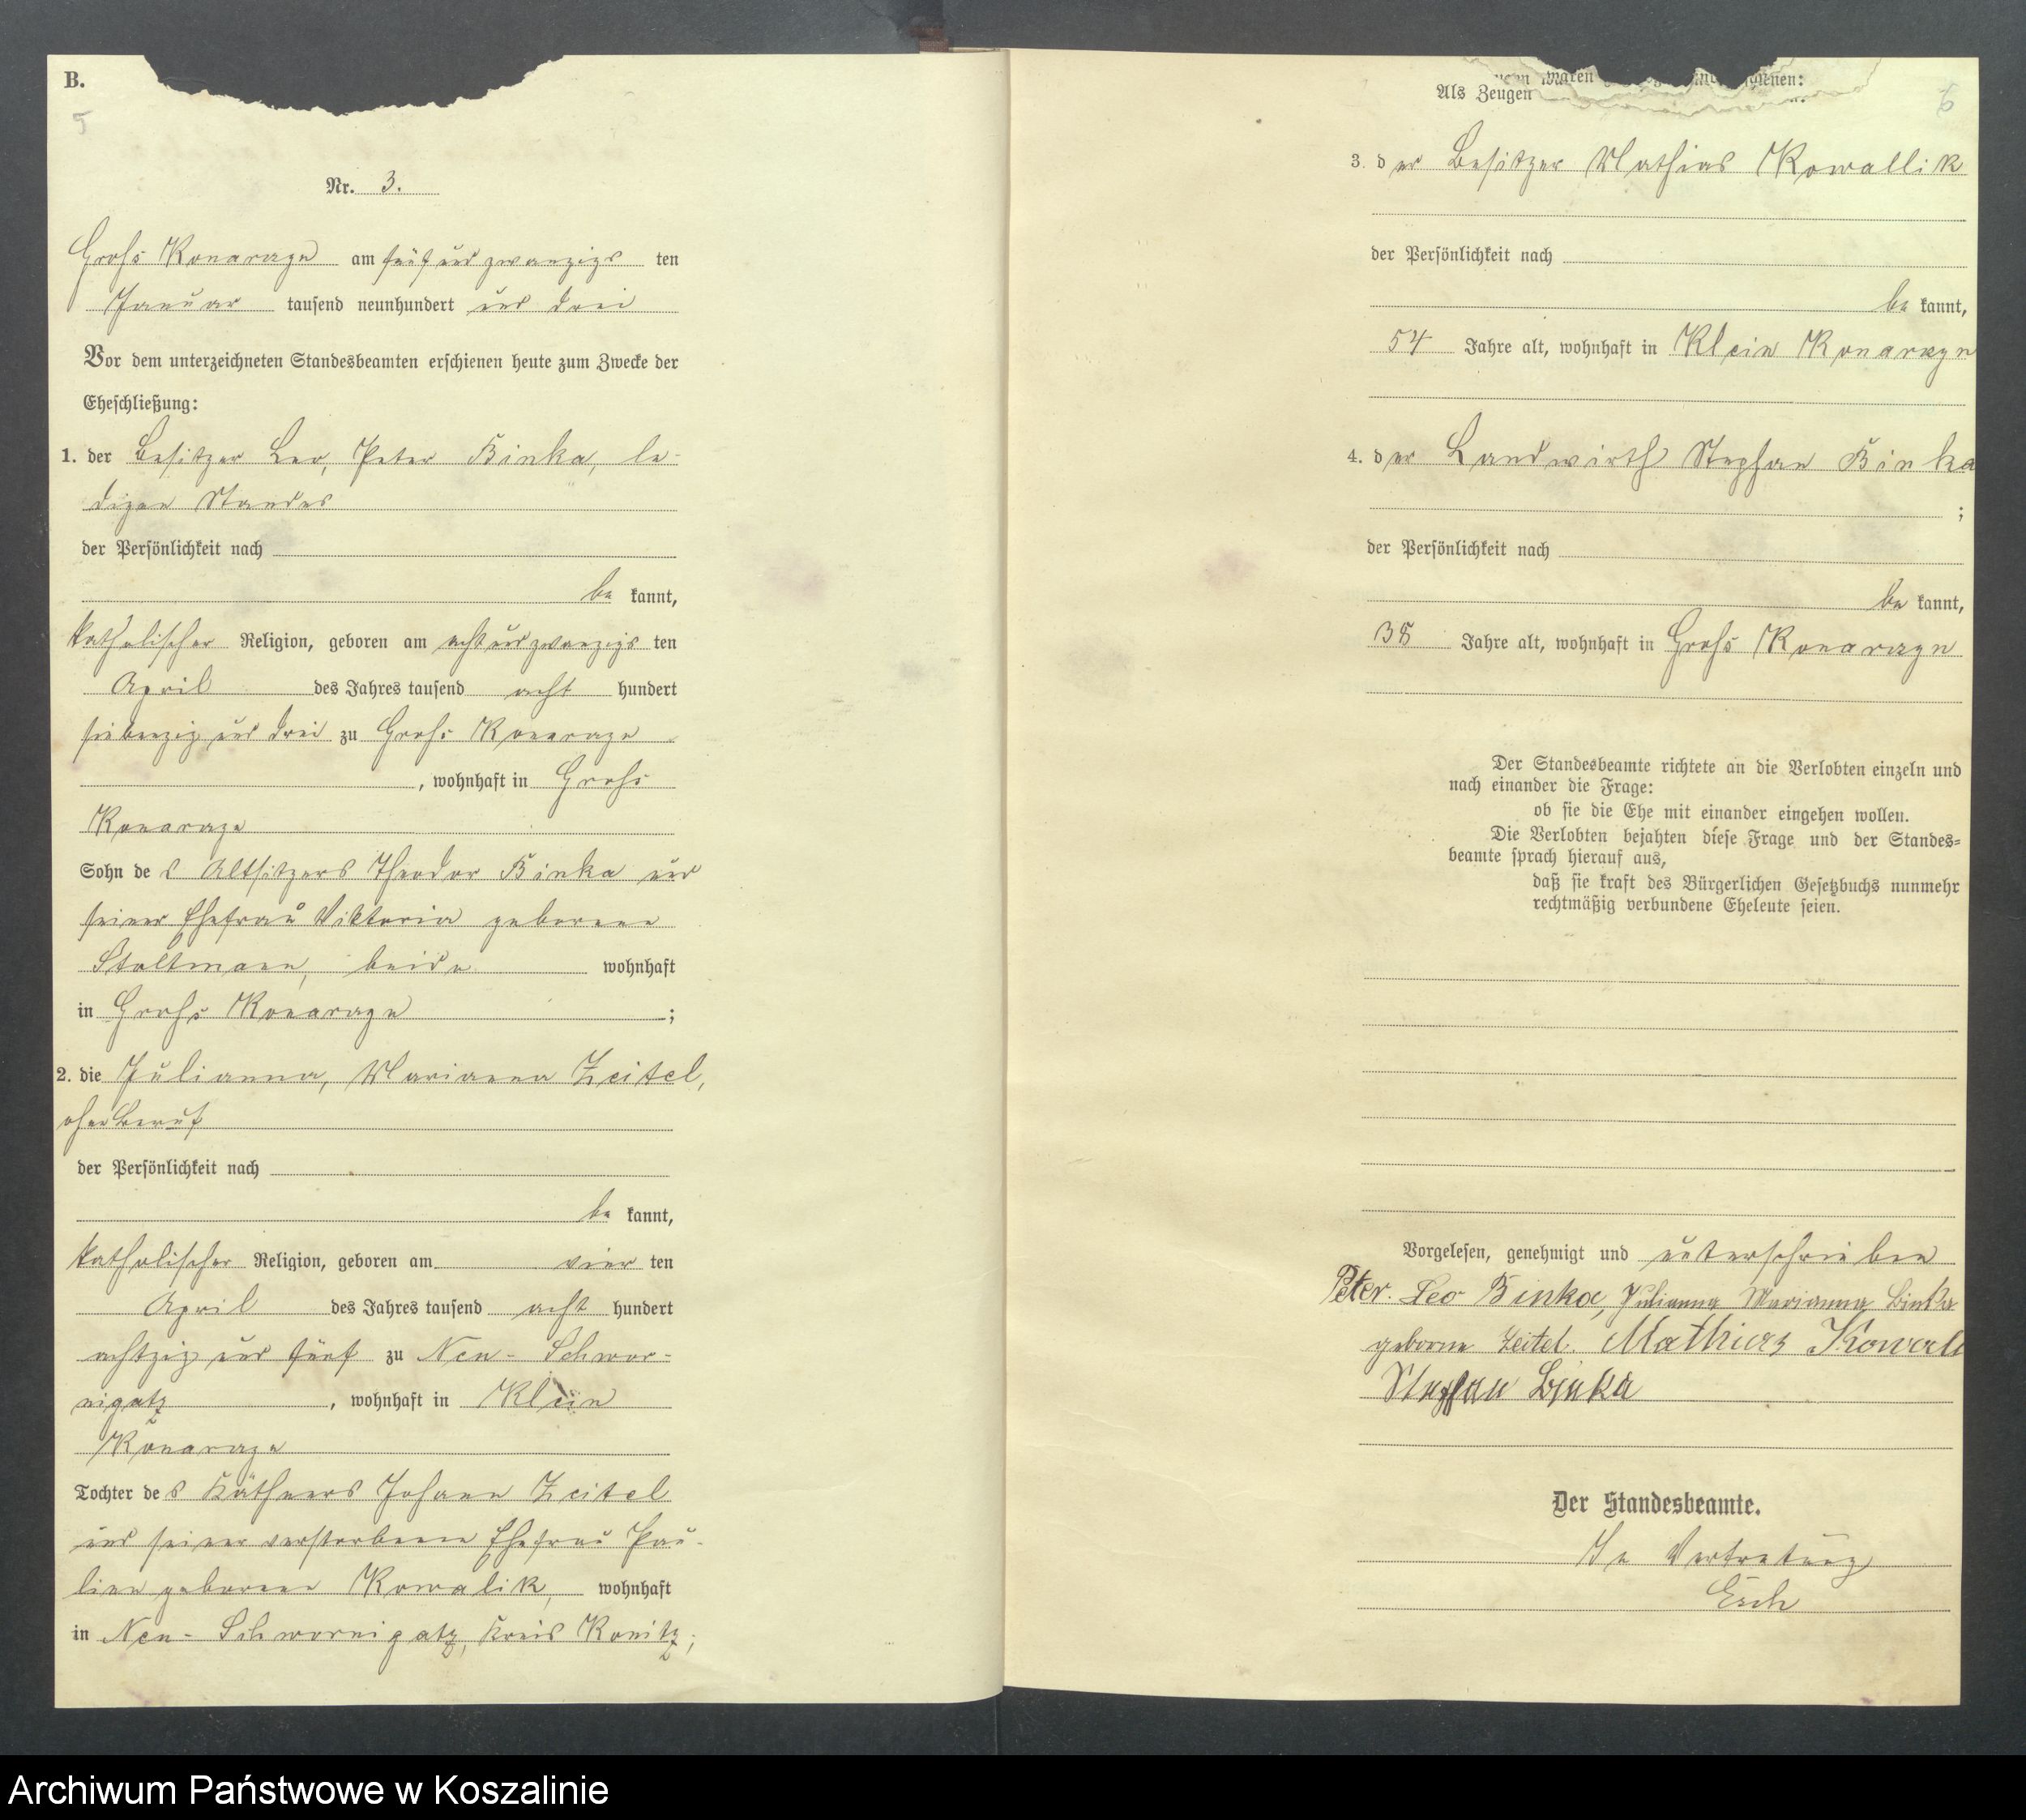 B.
5
Nr. 3.
Groß Konarczyn am fünf und zwanzigs ten
Januar tausend neunhundert und drei
Vor dem unterzeichneten Standesbeamten erschienen heute zum Zwecke der
Eheschließung:
1. der Besitzer Leo, Peter Binka, le-
digen Standes
der Persönlichkeit nach
be kannt,
katholischer Religion, geboren am acht und zwanzigs ten
April des Jahres tausend acht hundert
siebenzig und drei zu Groß Konarczyn
, wohnhaft in Groß
Konarczyn
Sohn de s Altsitzers Theodor Binka und
seiner Ehefrau Viktoria geborene
Stoltmann, beide wohnhaft
in Groß Konarczyn ;
2. die Julianna, Marianna Zeitel,
ohne Beruf
der Persönlichkeit nach
be kannt,
katholischer Religion, geboren am vier ten
April des Jahres tausend acht hundert
achtzig und fünf zu Neu- Schwor-
nigatz , wohnhaft in Klein
Konarczyn
Tochter de s Käthners Johann Zeitel
und seiner verstorbenen Ehefrau Pau-
line geborene Kowalik, wohnhaft
in Neu- Schwornigatz, Kreis Konitz;
6
Als Zeugen
3. d er Besitzer Mathias Kowallik
der Persönlichkeit nach
be kannt,
54 Jahre alt, wohnhaft in Klein Konarczyn
4. d er Landwirth Stephan Binka
;
der Persönlichkeit nach
be kannt,
38 Jahre alt, wohnhaft in Groß Konarczyn
Der Standesbeamte richtete an die Verlobten einzeln und
nach einander die Frage:
ob sie die Ehe mit einander eingehen wollen.
Die Verlobten bejahten diese Frage und der Standes-
beamte sprach hierauf aus,
daß sie kraft des Bürgerlichen Gesetzbuchs nunmehr
rechtmäßig verbundene Eheleute seien.
Vorgelesen, genehmigt und unterschrieben
Peter. Leo Binka, Julianna Marianna Binka
geborne Zeitel. Mathias Kowali
Stephan Binka
Der Standesbeamte.
In Vertretung
Esch
Archiwum Państwowe w Koszalinie